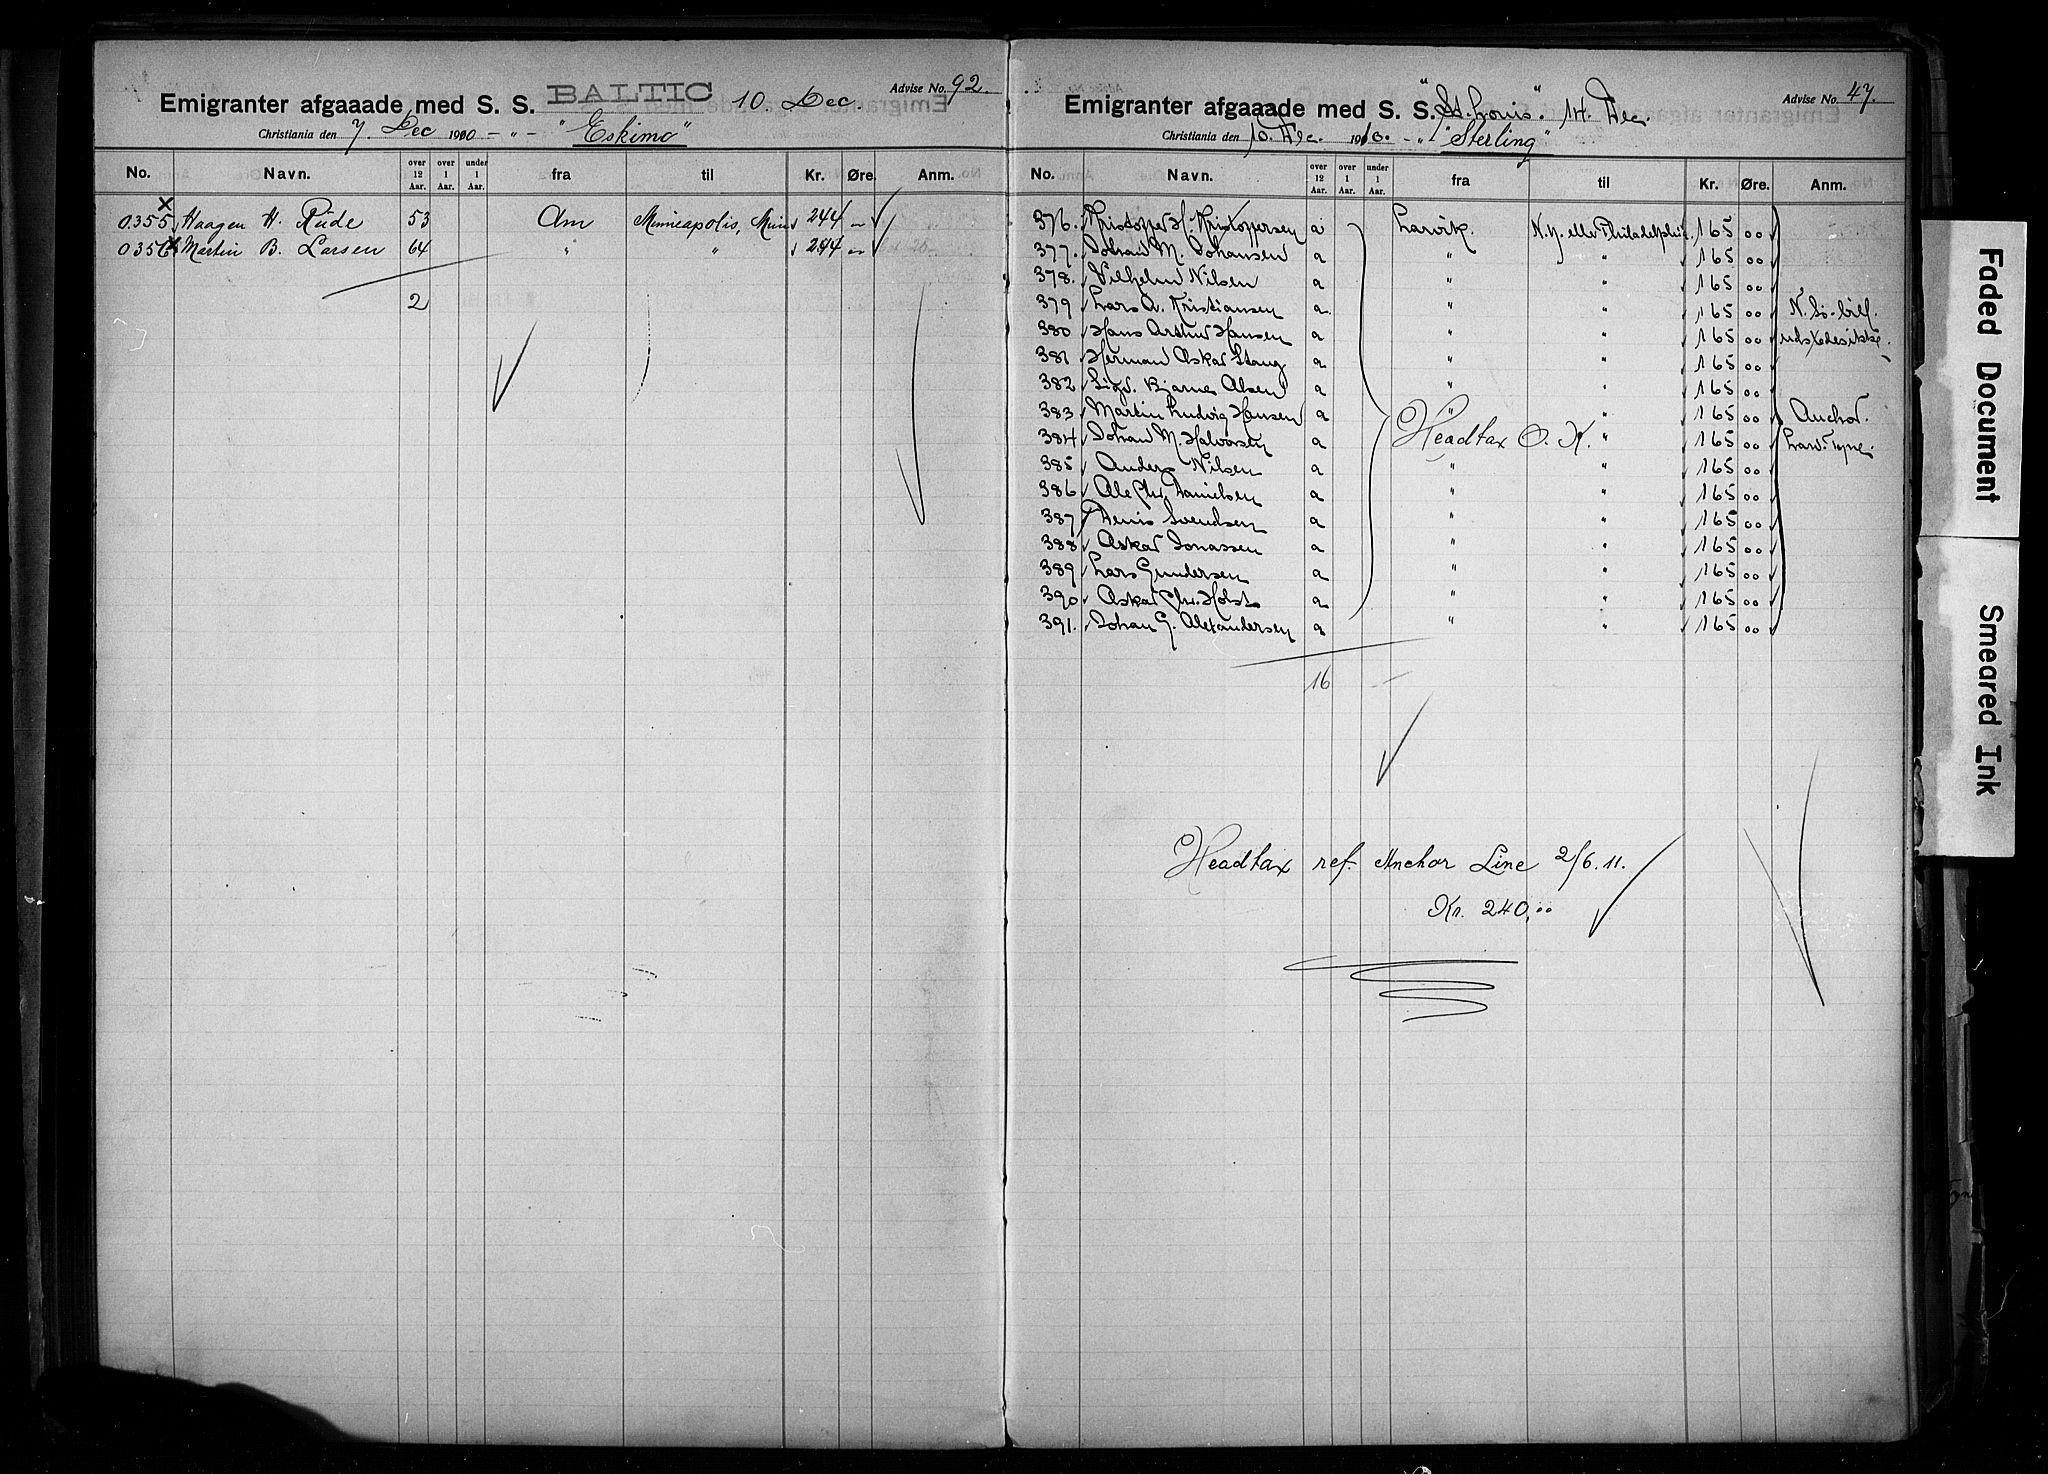 Advise No. 92.
Emigranter afgaaade med S. S. BALTIC 10. Dec.
Christiania den 7. Dec 1910 - „ - "Eskimo"
No. Navn. over 12 Aar. over 1 Aar. under 1 Aar. fra til Kr. Øre. Anm.
0355 Haagen H. Rüde 53 Am Minneapolis, Minn 244 -
0356 Martin B. Larsen 64 " " 244 -
2
Advise No. 47.
Emigranter afgaaade med S. S. "St. Louis". 14. Dec.
Christiania den 10. Dec. 1910. - „ - "Sterling"
No. Navn. over 12 Aar. over 1 Aar. under 1 Aar. fra til Kr. Øre. Anm.
376. Kristoffer H. Kristoffersen a Larvik. N.Y. eller Philadelphia. 165 00
377. Johan M. Johansen a " " 165 00
378. Vilhelm Nilsen a " " 165 00
379 Lars A. Kristiansen a " " 165 00
380 Hans Arthur Hansen a " " 165 00
381 Herman Askar Stang a " " 165 00
382 Sigv. Bjarne Olsen a " " 165 00
383 Martin Ludvig Hansen a " " 165 00 Anchor.
384 Johan M. Halvorsen a Headtax O. K. " 165 00 Larv. Tyne.
385 Anders Nilsen a " " 165 00
386 Ole Chr. Danielsen a " " 165 00
387 Denis Svendsen a " " 165 00
388 Askar Jonassen a " " 165 00
389 Lars Gundersen a " " 165 00
390 Askar Chr. Holst a " " 165 00
391. Johan G. Alexandersen a " " 165 00
16
Headtax ref. Anchor Line 2/6. 11.
Kr. 240,00
Faded Document
Smeared Ink